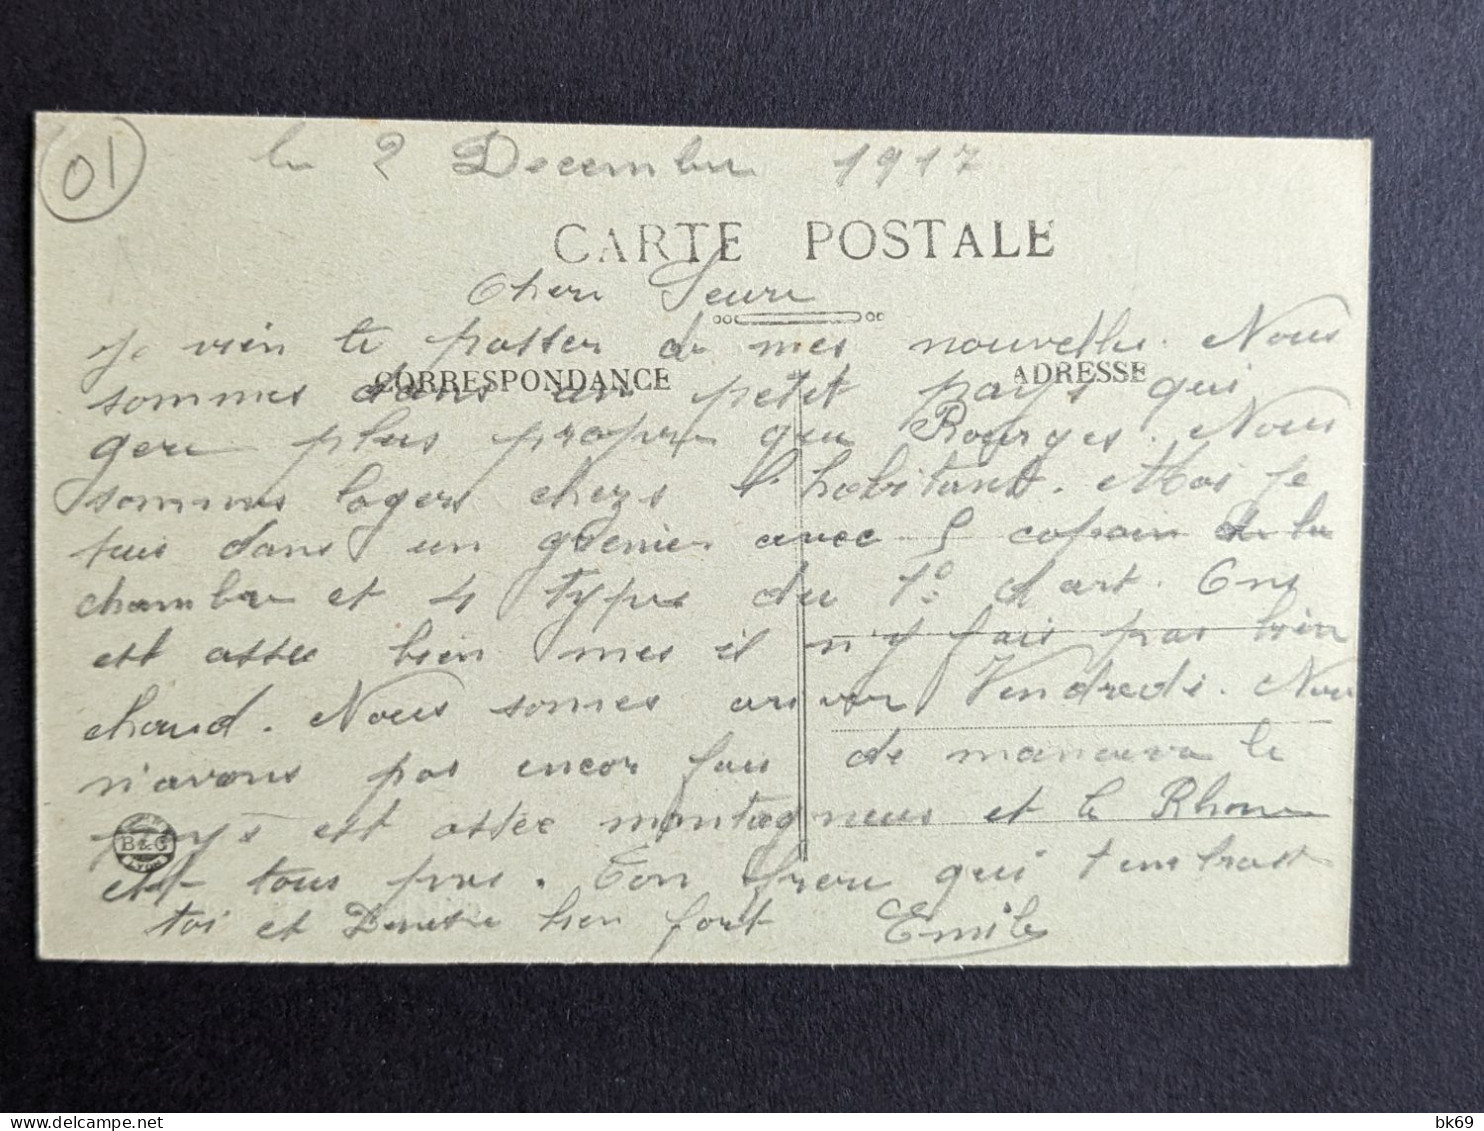 01
le 2 Decembre 1917
CARTE POSTALE
Chere Seure
Je vien te passer de mes nouvelles. Nous
CORRESPONDANCE
ADRESSE
sommes dans un petit pays qui
gere plus propre que Bourges. Nous
sommes logers chezs l'habitant. Moi Je
suis dans un grenier avec 5 copain de la
chambre et 4 types du 1º d'art. Ons
est assee bien mes il n'y fais pas bien
chaud. Nous somes arriver Vendredi. Nou
n'avons pas encor fais de manœuvre le
pays est assee montagneus et le Rhone
B&G
LYON
est tous pres. Ton frere qui t'embrasse
toi et Denise bien fort Emile
delcampe.net
bk69